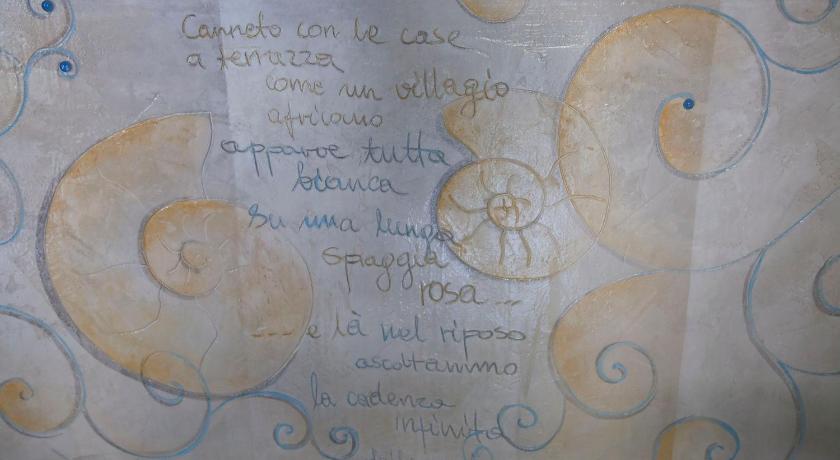 Canneto con le case
a terrazza
come un villagio
africano
apparve tutta
bianca
su una lunga
spiaggia
rosa ...
--- e là nel riposo
ascoltammo
la cadenza
infinita